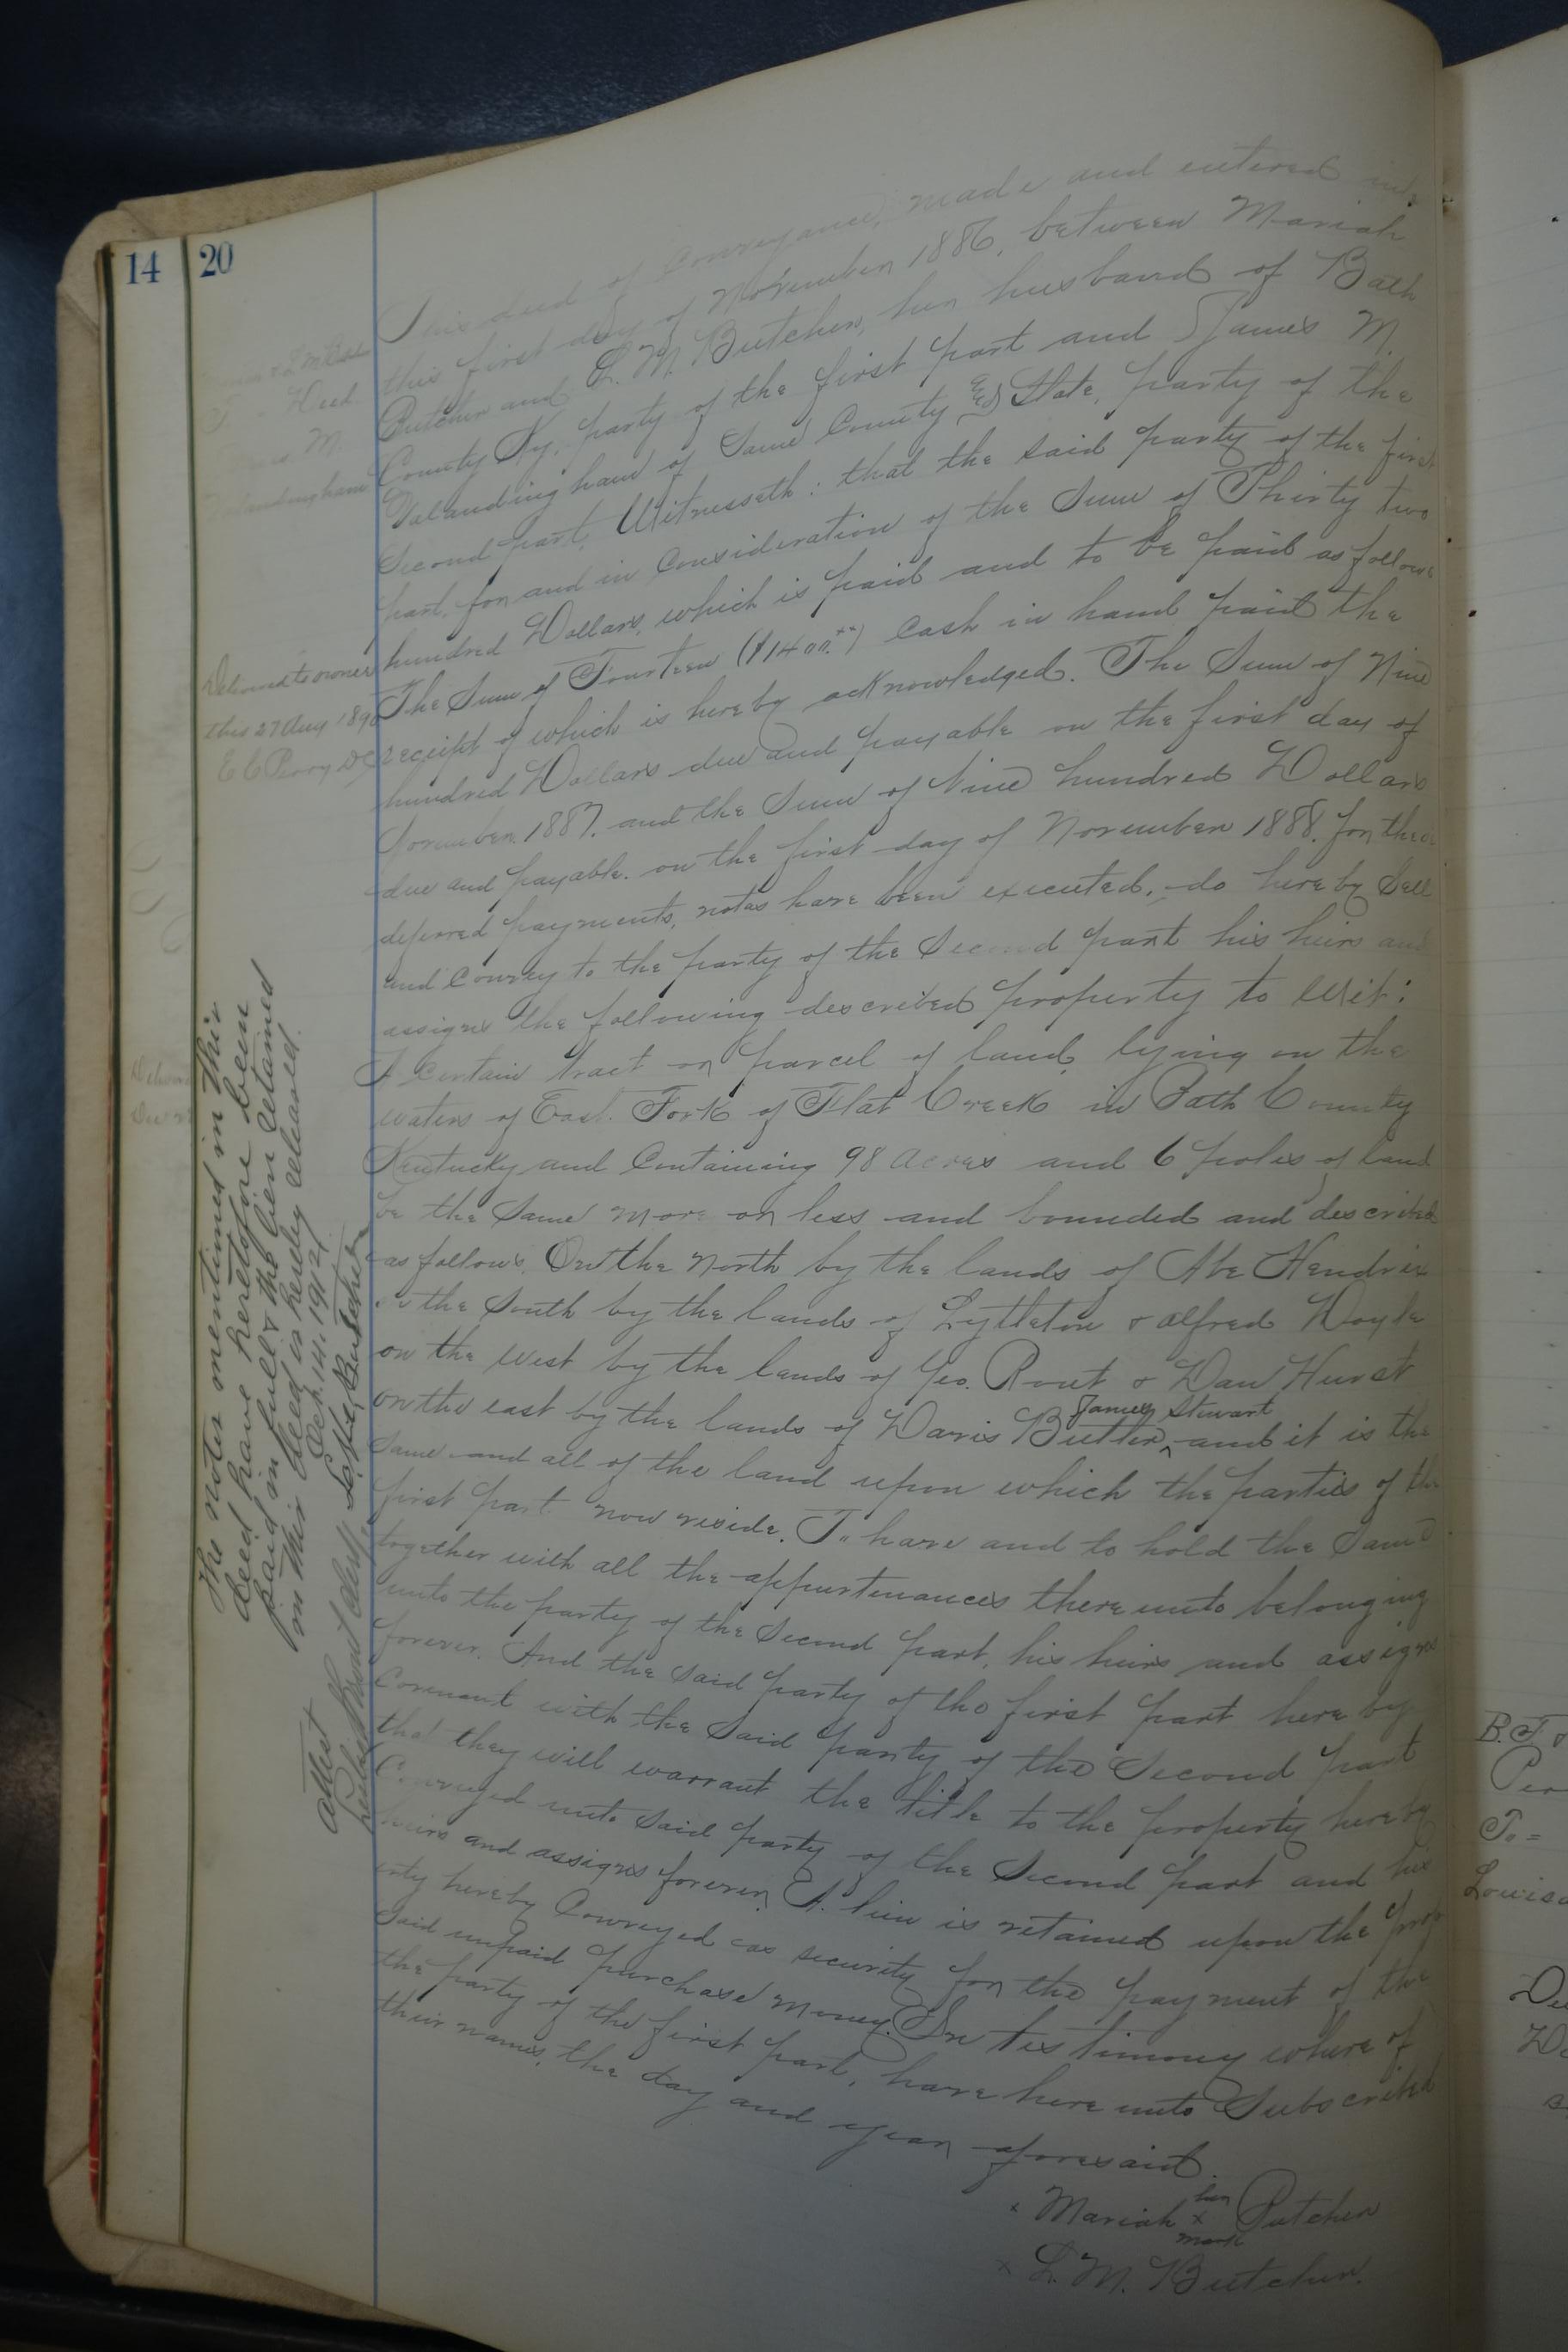 14
20
This deed of conveyance, made and entered into
this first day of November 1886, between Mariah
Butcher and L. M. Butcher, her husband of Bath
County Ky, party of the first part and James M.
Valandingham of Same County & State, party of the
Second part, Witnesseth: that the said party of the first
part, for and in Consideration of the Sum of Thirty two
hundred Dollars, which is paid and to be paid as follows
The Sum of Fourteen ($1400.xx) Cash in hand paid the
receipt of which is hereby acknowledged. The Sum of Nine
hundred Dollars due and payable on the first day of
November 1887. and the Sum of Nine hundred Dollars
due and payable. on the first day of November 1888. for these
deferred payments, notes have been executed, do hereby Sell
and Convey to the party of the Second part his heirs and
assigns the following described property to Wit:
A Certain tract or parcel of land, lying on the
waters of East. Fork of Flat Creek in Bath County
Kentucky and Containing 98 acres and 6 poles of land
be the Same more or less and bounded and described
as follows. On the North by the lands of Abe Hendrix
on the South by the lands of Lyttleton & Alfred Doyle
on the West by the lands of Geo. Rout & Dan Hurst
on the east by the lands of Davis Butler, ^ James Stewart and it is the
Same and all of the land upon which the parties of the
first part now reside. To have and to hold the Same
together with all the appurtenances there unto belonging
unto the party of the Second part, his heirs and assigns
forever. And the said party of the first part here by
Covenant with the Said party of the Second part
that they will warrant the title to the property hereby
Conveyed unto Said party of the Second part and his
heirs and assigns forever. A lien is retained upon the prop
erty hereby Conveyed as security for the payment of the
Said unpaid purchase money. In testimony where of
the party of the first part, have here unto Subscribed
their names, the day and year aforesaid.
x Mariah her x mark Butcher
x L. M. Butcher.
Deed
M.
Valandingham
Delivered to owner
this 27 Aug 1890
E C Perry DC
The notes mentioned in this
deed have heretofore been
paid in full & the lien retained
in this deed is hereby released.
Oct. 14. 1912
Butcher
Attest
Clerk
B. F.
To =
Louisa